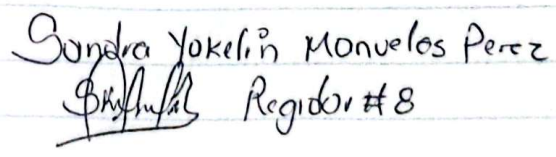 Sandra Yokelin Manuelos Perez
Regidor #8